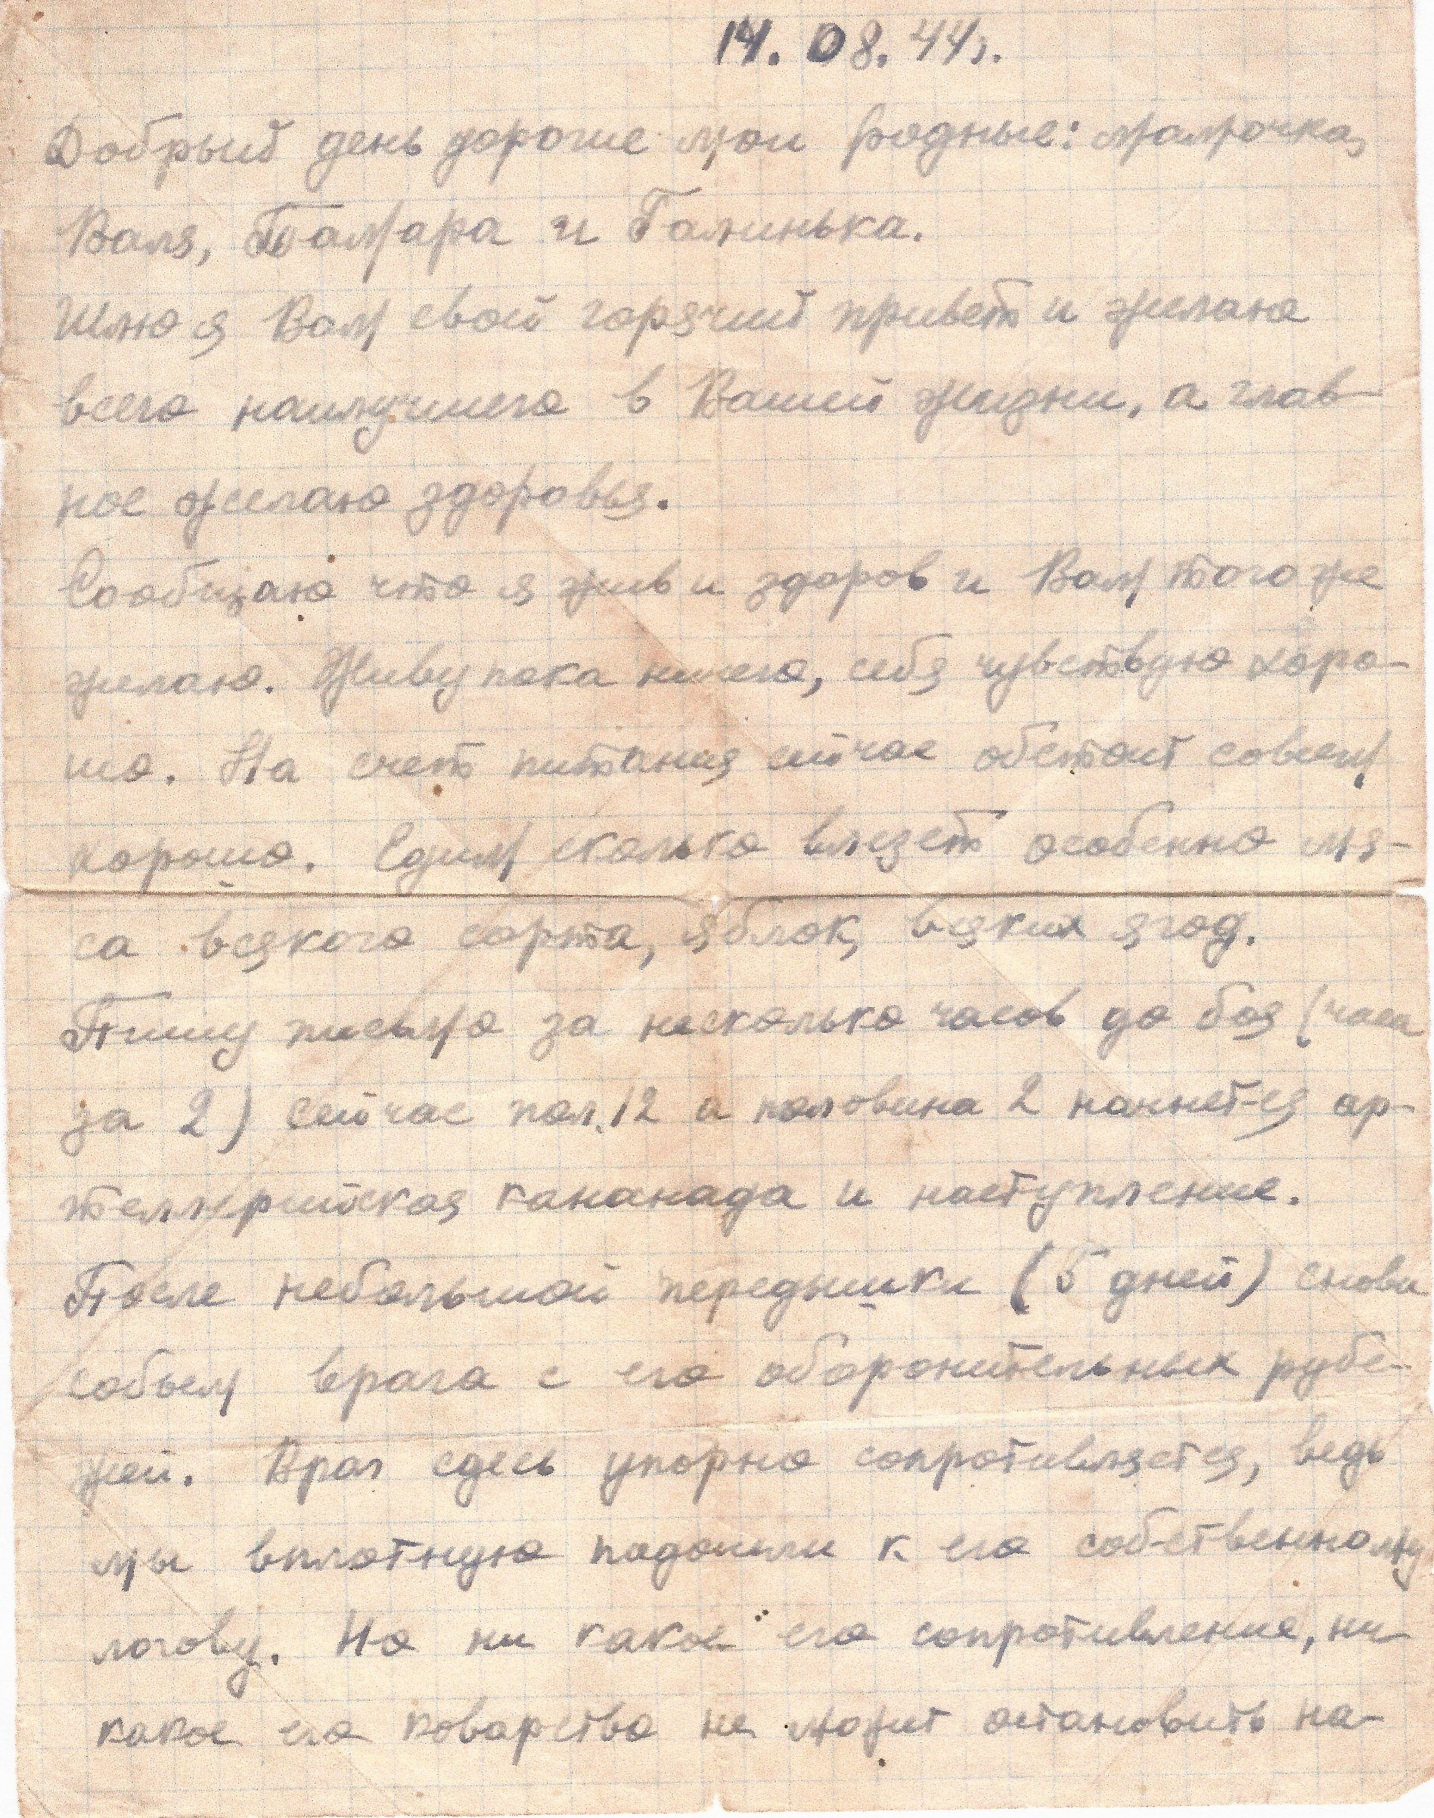 14. 08. 44г.
Добрый день дорогие мои родные: мамочка,
Валя, Тамара и Галинька.
Шлю я Вам свой горячий привет и желаю
всего наилучшего в Вашей жизни, а глав-
ное желаю здоровья.
Сообщаю что я жив и здоров и Вам того же
желаю. Живу пока ничего, себя чувствую хоро-
шо. На счет питания сейчас обстоит совсем
хорошо. Едим сколько влезет особенно мя-
са всякого сорта, яблок, всяких ягод.
Пишу письмо за несколько часов до боя (часа
за 2) сейчас пол.12 а половина 2 начнется ар-
теллерийская кананада и наступление.
После небольшой передышки (5 дней) снова
собьем врага с его оборонительных рубе-
жей. Враг сдесь упорно сопротивляется, ведь
мы вплотную подошли к его собственному
логову. Но ни какое его сопротивление, ни
какое его коварство не может остановить на-